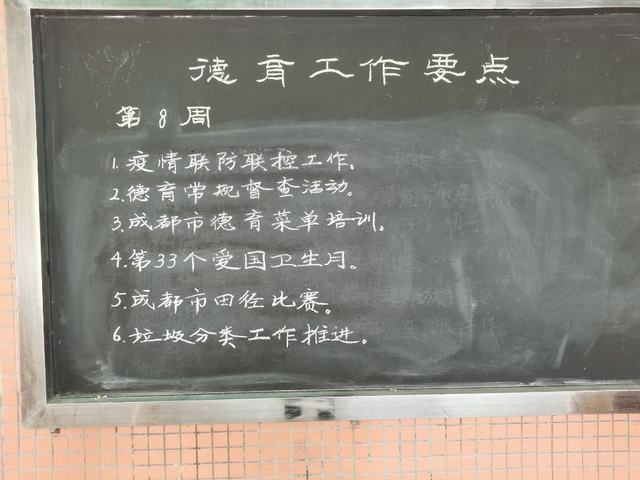 德育工作要点
第8周
1.疫情联防联控工作。
2.德育常规督查活动。
3.成都市德育菜单培训。
4.第33个爱国卫生月。
5.成都市田径比赛。
6.垃圾分类工作推进。